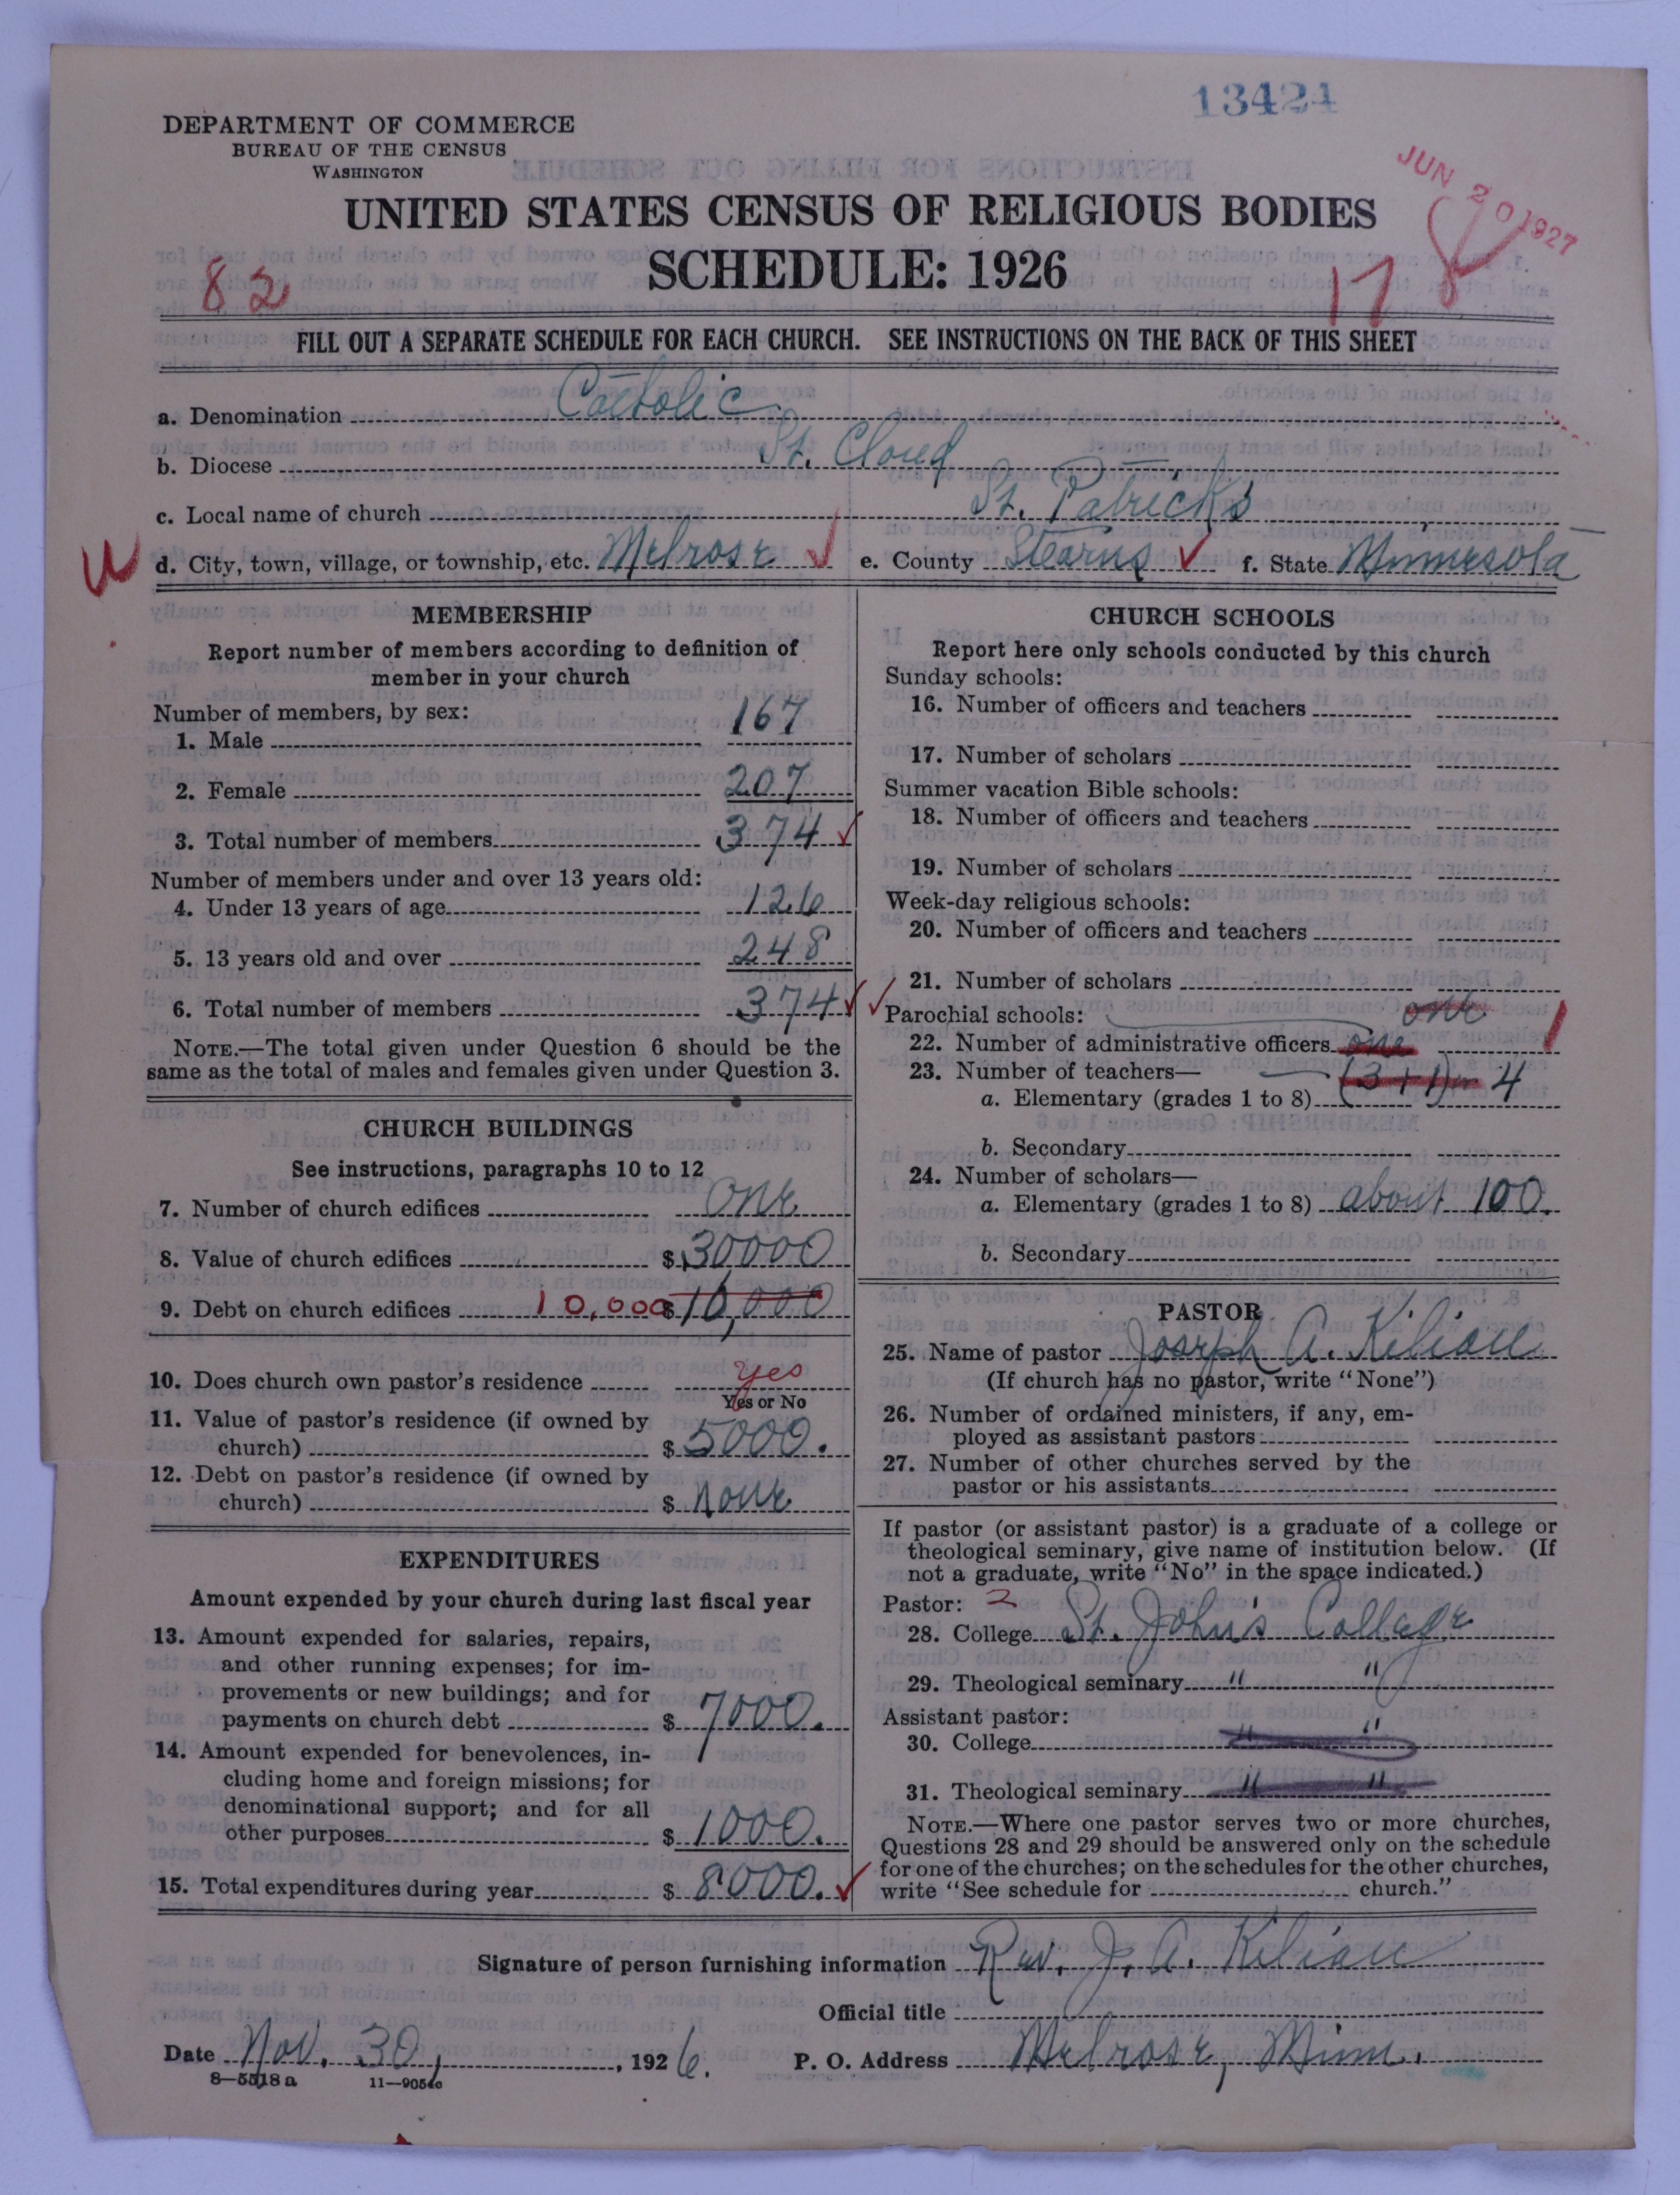 13424
DEPARTMENT OF COMMERCE
BUREAU OF THE CENSUS
WASHINGTON
JUN 20 1927
UNITED STATES CENSUS OF RELIGIOUS BODIES
SCHEDULE: 1926
82
178
FILL OUT A SEPARATE SCHEDULE FOR EACH CHURCH. SEE INSTRUCTIONS ON THE BACK OF THIS SHEET
a. Denomination Catholic
b. Diocese St. Cloud
c. Local name of church St. Patrick's
d. City, town, village, or township, etc. Melrose ✓ e. County Stearns ✓ f. State Minnesota
MEMBERSHIP
Report number of members according to definition of
member in your church
Number of members, by sex:
1. Male 167
2. Female 207
3. Total number of members 374 ✓
Number of members under and over 13 years old:
4. Under 13 years of age 126
5. 13 years old and over 248
6. Total number of members 374 ✓ ✓
NOTE.—The total given under Question 6 should be the
same as the total of males and females given under Question 3.
CHURCH BUILDINGS
See instructions, paragraphs 10 to 12
7. Number of church edifices one
8. Value of church edifices $ 30000
9. Debt on church edifices 10,000 $ 10,000
10. Does church own pastor's residence yes
Yes or No
11. Value of pastor's residence (if owned by
church) $ 5000.
12. Debt on pastor's residence (if owned by
church) $ none
EXPENDITURES
Amount expended by your church during last fiscal year
13. Amount expended for salaries, repairs,
and other running expenses; for im-
provements or new buildings; and for
payments on church debt $ 7000.
14. Amount expended for benevolences, in-
cluding home and foreign missions; for
denominational support; and for all
other purposes $ 1000.
15. Total expenditures during year $ 8000. ✓
CHURCH SCHOOLS
Report here only schools conducted by this church
Sunday schools:
16. Number of officers and teachers
17. Number of scholars
Summer vacation Bible schools:
18. Number of officers and teachers
19. Number of scholars
Week-day religious schools:
20. Number of officers and teachers
21. Number of scholars
Parochial schools: one
22. Number of administrative officers one 1
23. Number of teachers—
a. Elementary (grades 1 to 8) (3 + 1) 4
b. Secondary
24. Number of scholars—
a. Elementary (grades 1 to 8) about 100.
b. Secondary
PASTOR
25. Name of pastor Joseph A. Kilian
(If church has no pastor, write "None")
26. Number of ordained ministers, if any, em-
ployed as assistant pastors:
27. Number of other churches served by the
pastor or his assistants
If pastor (or assistant pastor) is a graduate of a college or
theological seminary, give name of institution below. (If
not a graduate, write "No" in the space indicated.)
Pastor: 2
28. College St. John's College
29. Theological seminary " "
Assistant pastor:
30. College " "
31. Theological seminary " "
NOTE.—Where one pastor serves two or more churches,
Questions 28 and 29 should be answered only on the schedule
for one of the churches; on the schedules for the other churches,
write "See schedule for church."
Signature of person furnishing information Rev. J. A. Kilian
Official title
Date Nov. 30, 1926. P. O. Address Melrose, Minn.
8—5518a 11—9054c